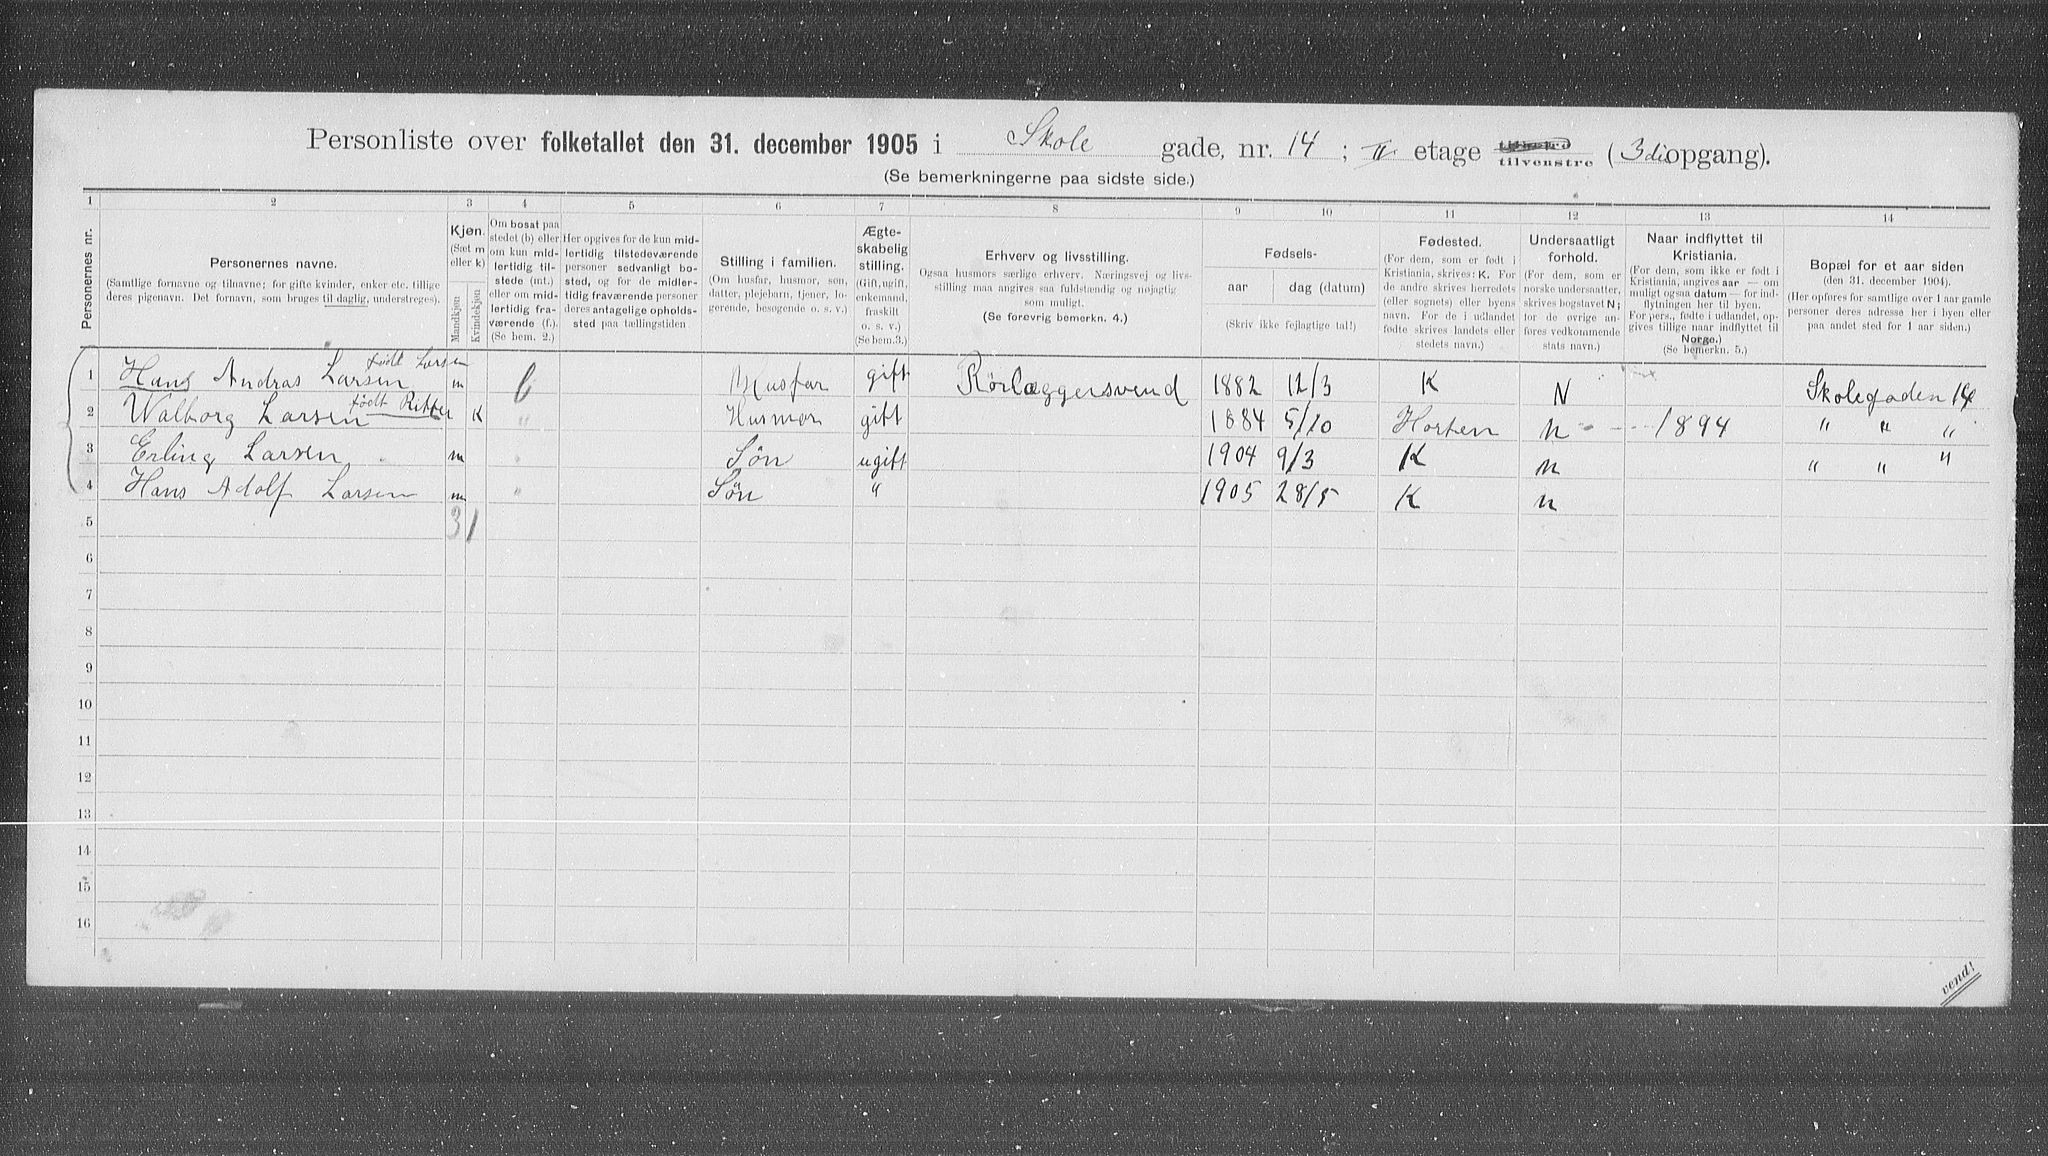 Personliste over folketallet den 31. december 1905 i Skole gade, nr. 14 ; II etage tilvenstre (3die opgang).
(Se bemerkningerne paa sidste side.)
1 2 3 4 5 6 7 8 9 10 11 12 13 14
Personernes nr.
Personernes navne.
(Samtlige fornavne og tilnavne; for gifte kvinder, enker etc. tillige
deres pigenavn. Det fornavn, som bruges til daglig, understreges).
Kjøn.
(Sæt m
eller k)
Mandkjøn
Kvindekjøn
Om bosat paa
stedet (b) eller
om kun mid-
lertidig til-
stede (mt.)
eller om mid-
lertidig fra-
værende (f.).
(Se bem. 2.)
Her opgives for de kun mid-
lertidig tilstedeværende
personer sedvanligt bo-
sted, og for de midler-
tidig fraværende personer
deres antagelige opholds-
sted paa tællingstiden
Stilling i familien.
(Om husfar, husmor, søn,
datter, plejebarn, tjener, lo-
gerende, besøgende o. s. v.)
Ægte-
skabelig
stilling.
(Gift, ugift,
enkemand,
fraskilt
o. s. v.)
(Se bem.3.)
Erhverv og livsstilling.
Ogsaa husmors særlige erhverv. Næringsvej og livs-
stilling maa angives saa fuldstændig og nøjagtig
som muligt.
(Se forøvrig bemerkn. 4.)
Fødsels-
aar dag (datum)
(Skriv ikke fejlagtige tal!)
Fødested.
(For dem, som er født i
Kristiania, skrives: K. For
de andre skrives herredets
(eller sognets) eller byens
navn. For de i udlandet
fødte skrives landets eller
stedets navn.)
Undersaatligt
forhold.
(For dem, som er
norske undersaatter,
skrives bogstavet N;
for de øvrige an-
føres vedkommende
stats navn.)
Naar indflyttet til
Kristiania.
(For dem, som ikke er født i
Kristiania, angives aar — om
muligt ogsaa datum — for ind-
flytningen her til byen.
For pers., fødte i udlandet, op-
gives tillige naar indflyttet til
Norge.)
(Se bemerkn. 5.)
Bopæl for et aar siden
(den 31. december 1904).
(Her opføres for samtlige over 1 aar gamle
personer deres adresse her i byen eller
paa andet sted for 1 aar siden.)
1 Hans Andras Larsen født Larsen m b Husfar gift Rörlæggersvend 1882 12/3 K N Skolegaden 14
2 Walborg Larsen født Ritter K " Husmor gift 1884 5/10 Horten n 1894 " " "
3 Erling Larsen m " Søn ugift 1904 9/3 K n " " "
4 Hans Adolf Larsen m " Søn " 1905 28/5 K n
5 3 1
6
7
8
9
10
11
12
13
14
15
16
vend!